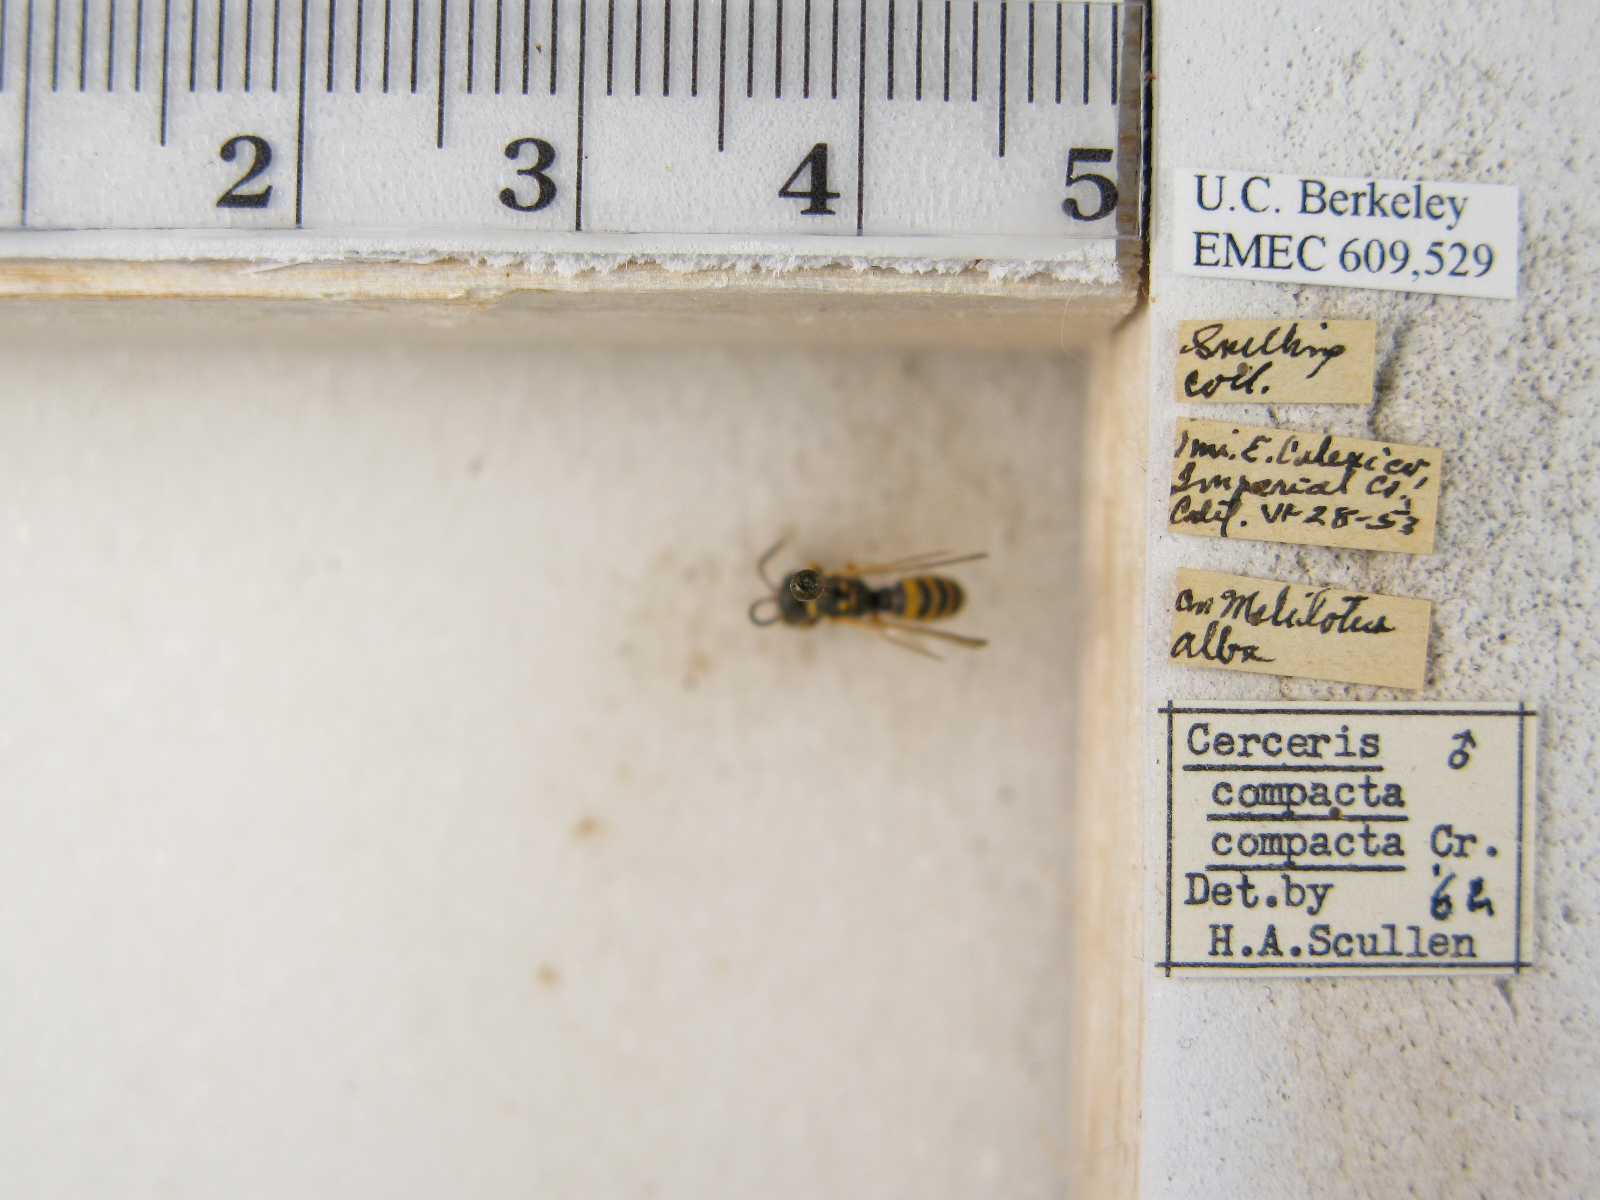 2 3 4 5
U.C. Berkeley
EMEC 609,529
Snelling
coll.
1 mi. E. Calexico,
Imperial Co.,
Calif. VI-28-53
on Melilotus
alba
Cerceris ♂
compacta
compacta Cr.
Det.by
H.A.Scullen